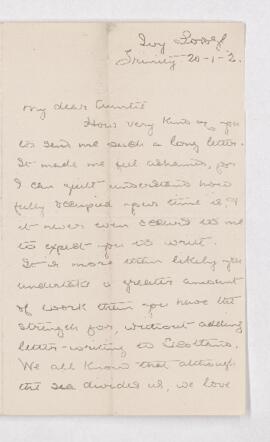 Ivy Lodge
Trinity 20-1-2.
My dear Auntie
How very kind of you
to send me such a long letter.
It made me feel ashamed, for
I can quite understand how
fully occupied your time is &
it never even occurred to me
to expect you to write.
It is more than likely you
undertake a greater amount
of work than you have the
strength for, without adding
letter-writing to Scotland.
We all know that although
the sea divides us, we love